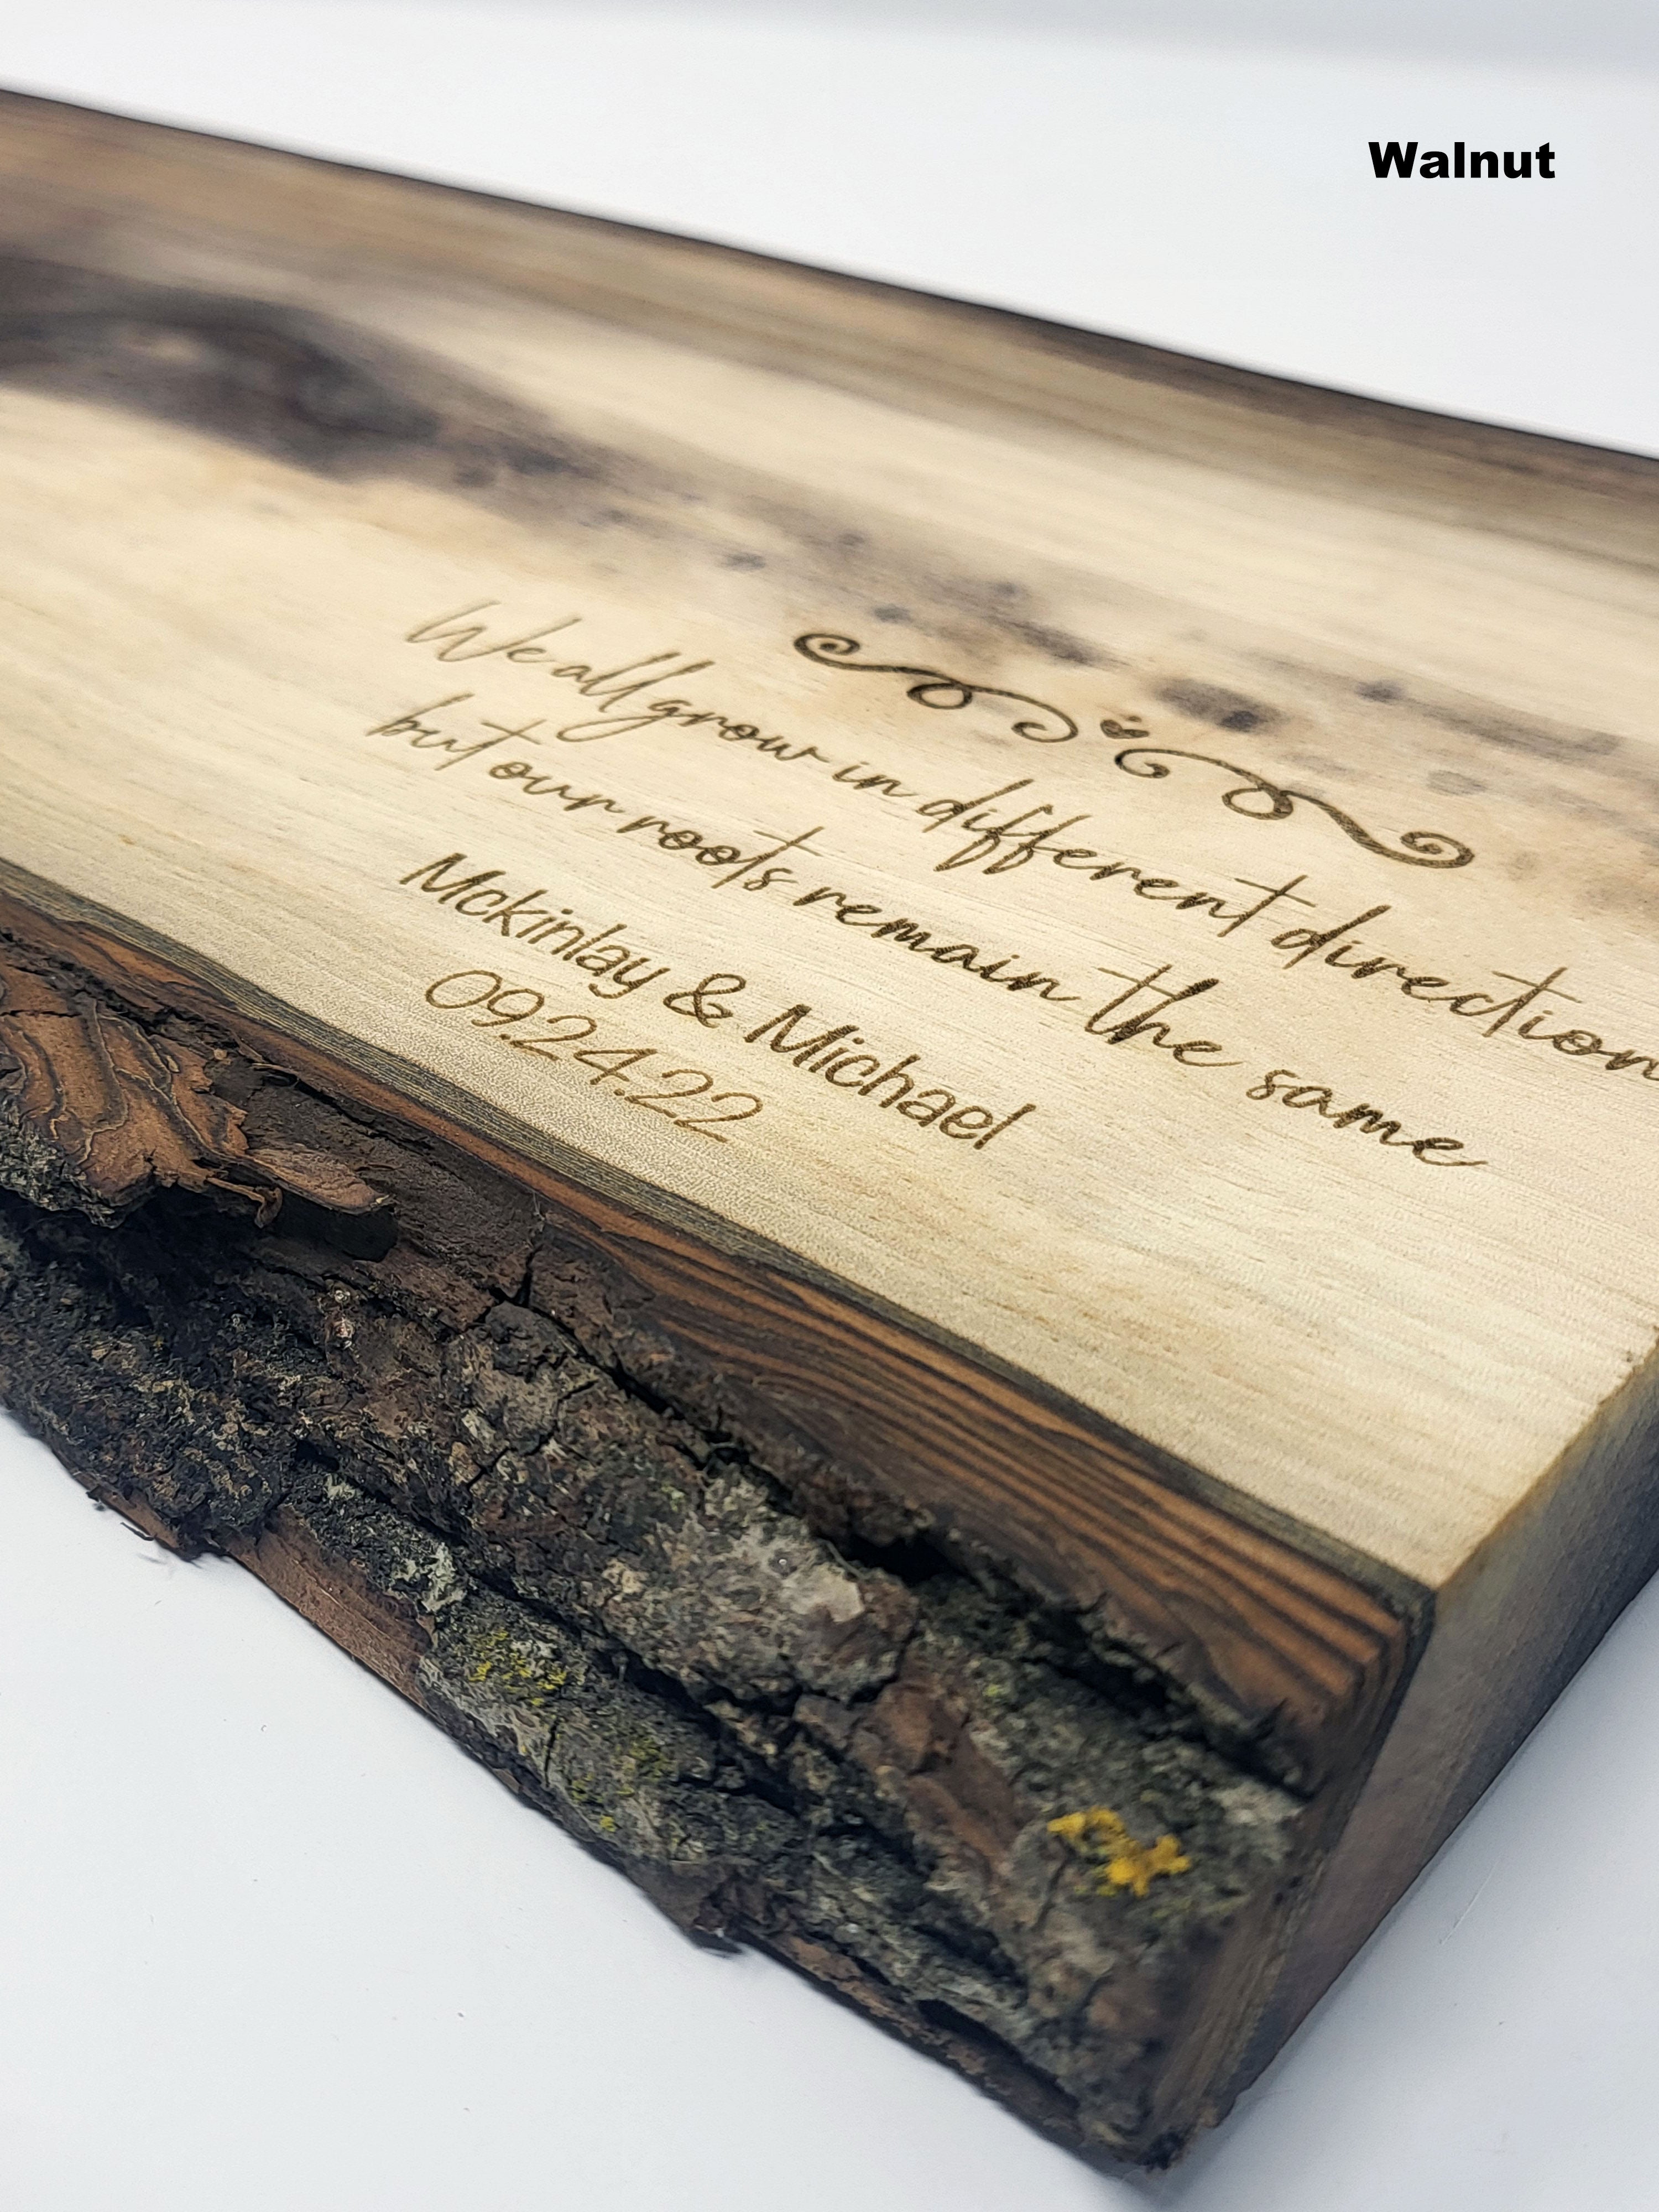 Walnut
We all grow in different direction
but our roots remain the same
Mckinlay & Michael
09.24.22